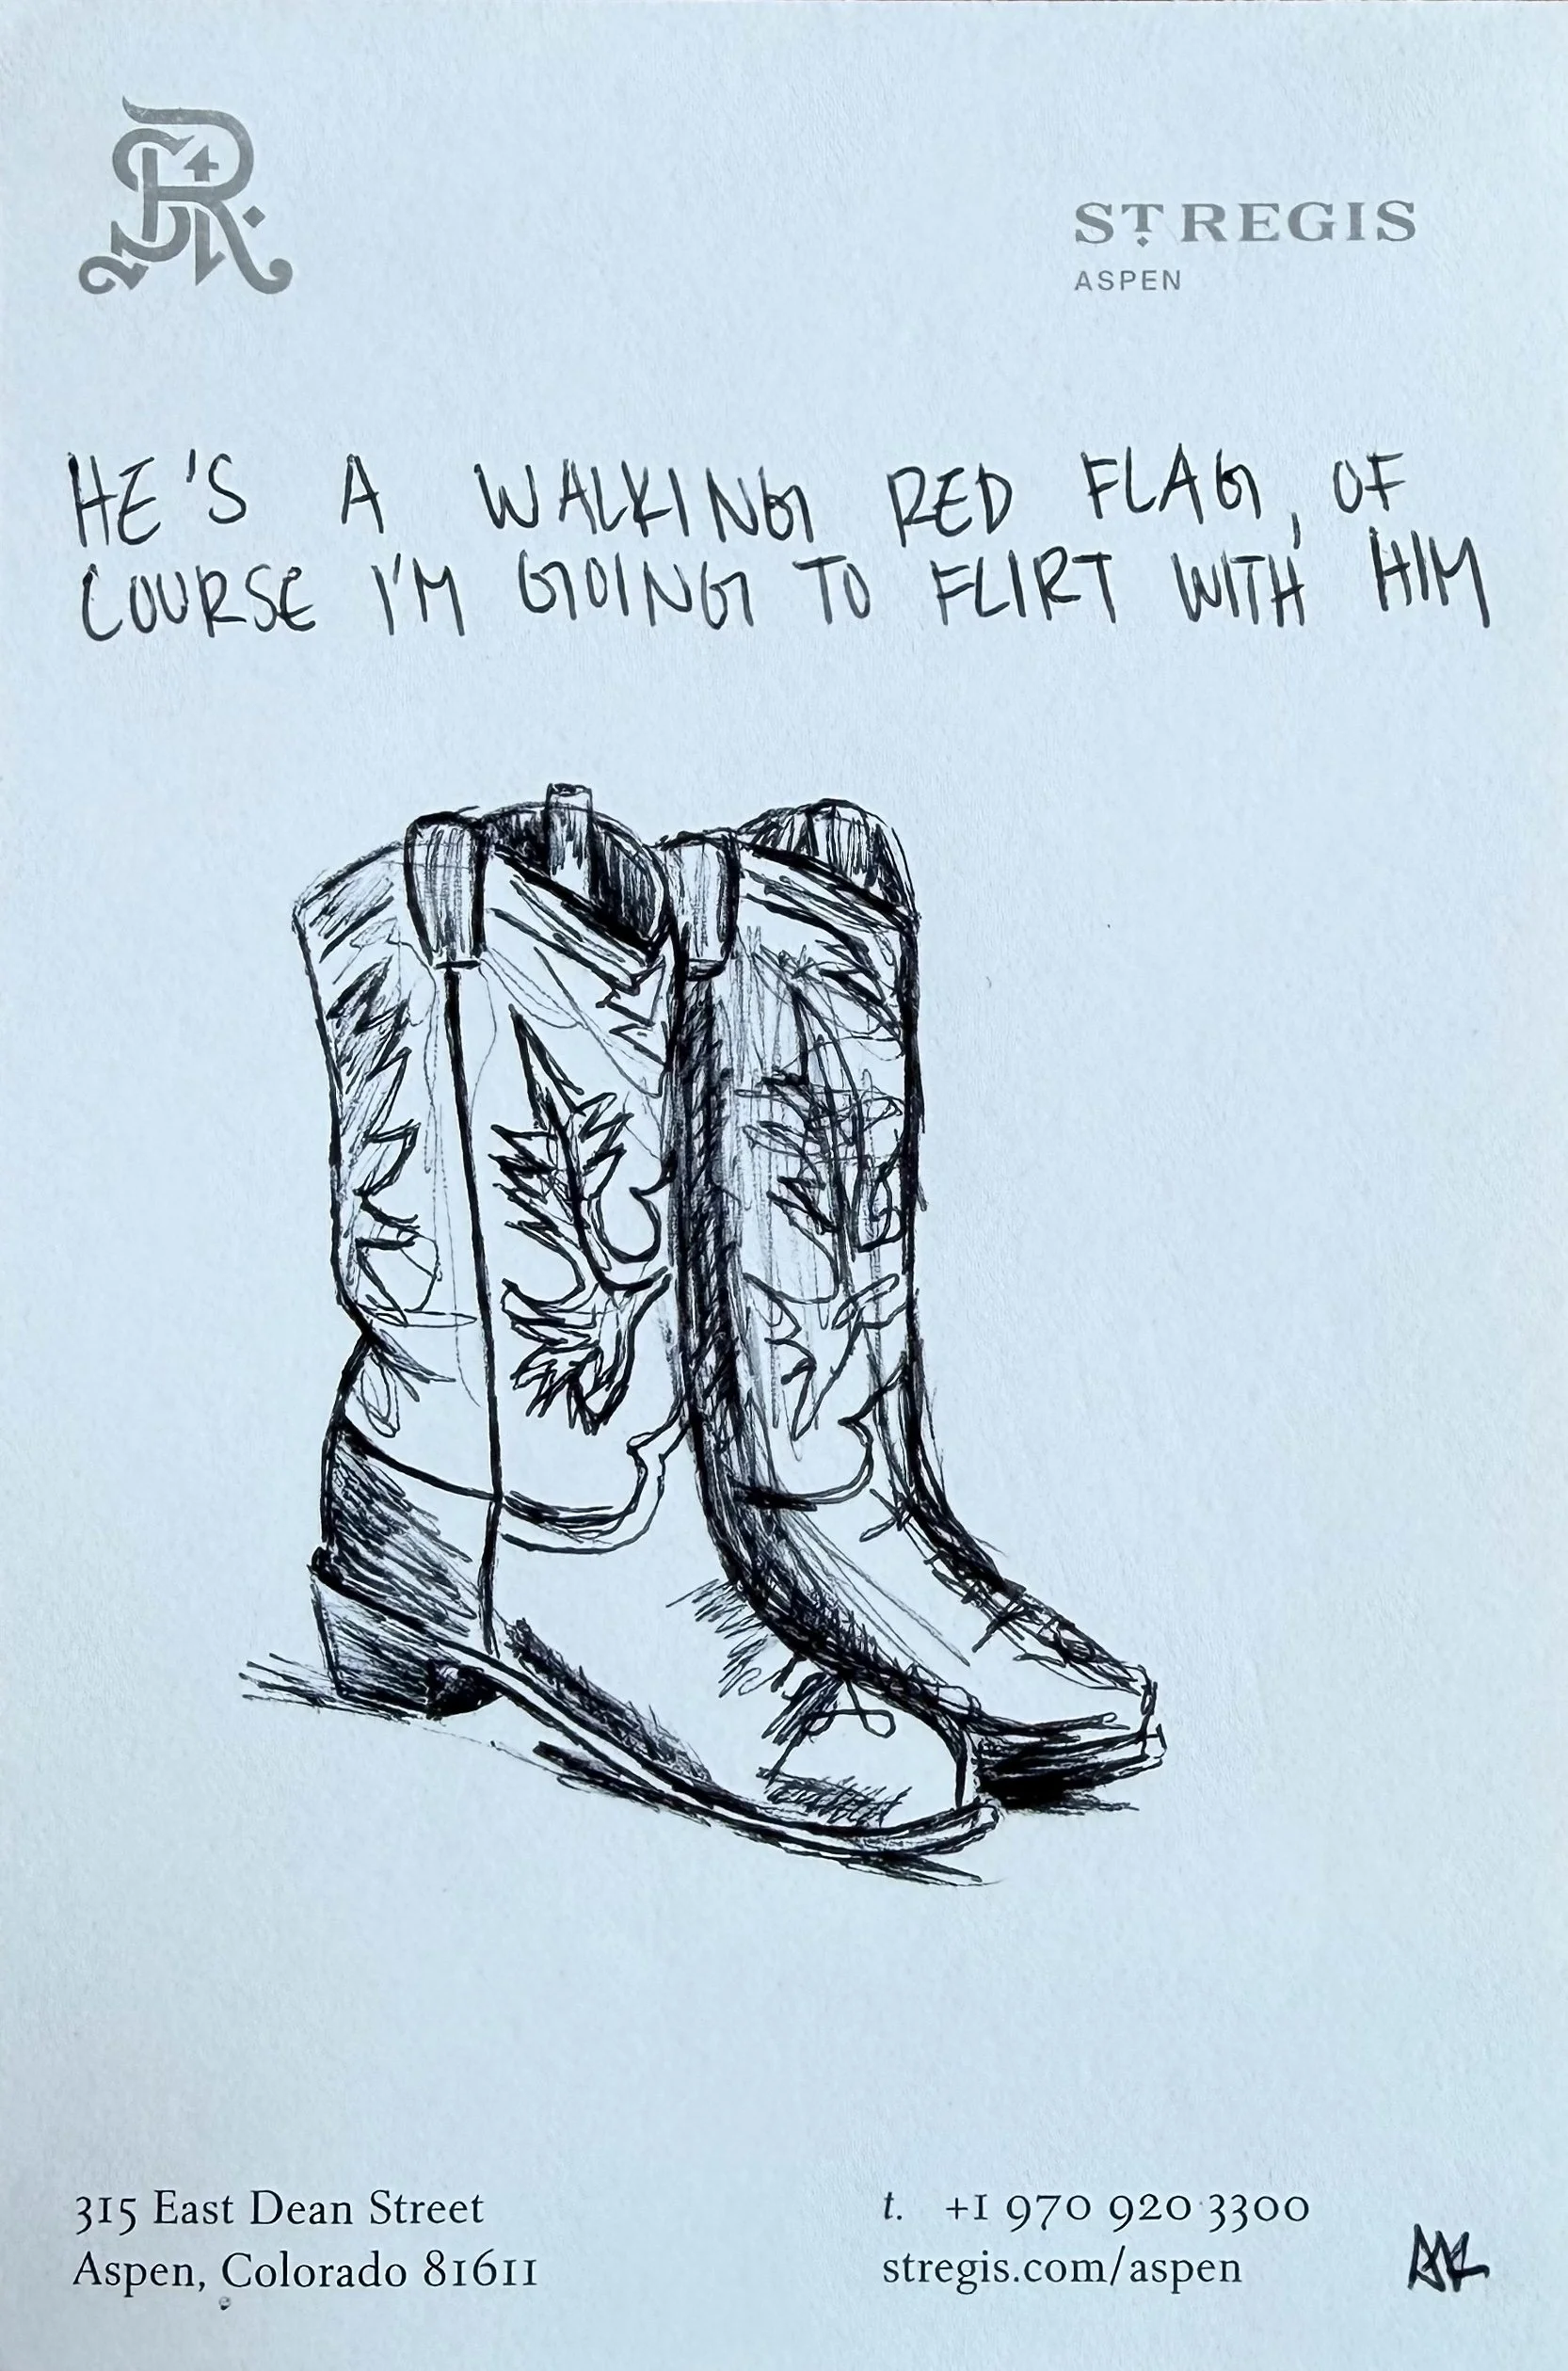 ST REGIS
ASPEN
HE'S A WALKING RED FLAG, OF
COURSE I'M GOING TO FLIRT WITH HIM
315 East Dean Street
Aspen, Colorado 81611
t. +1 970 920 3300
stregis.com/aspen